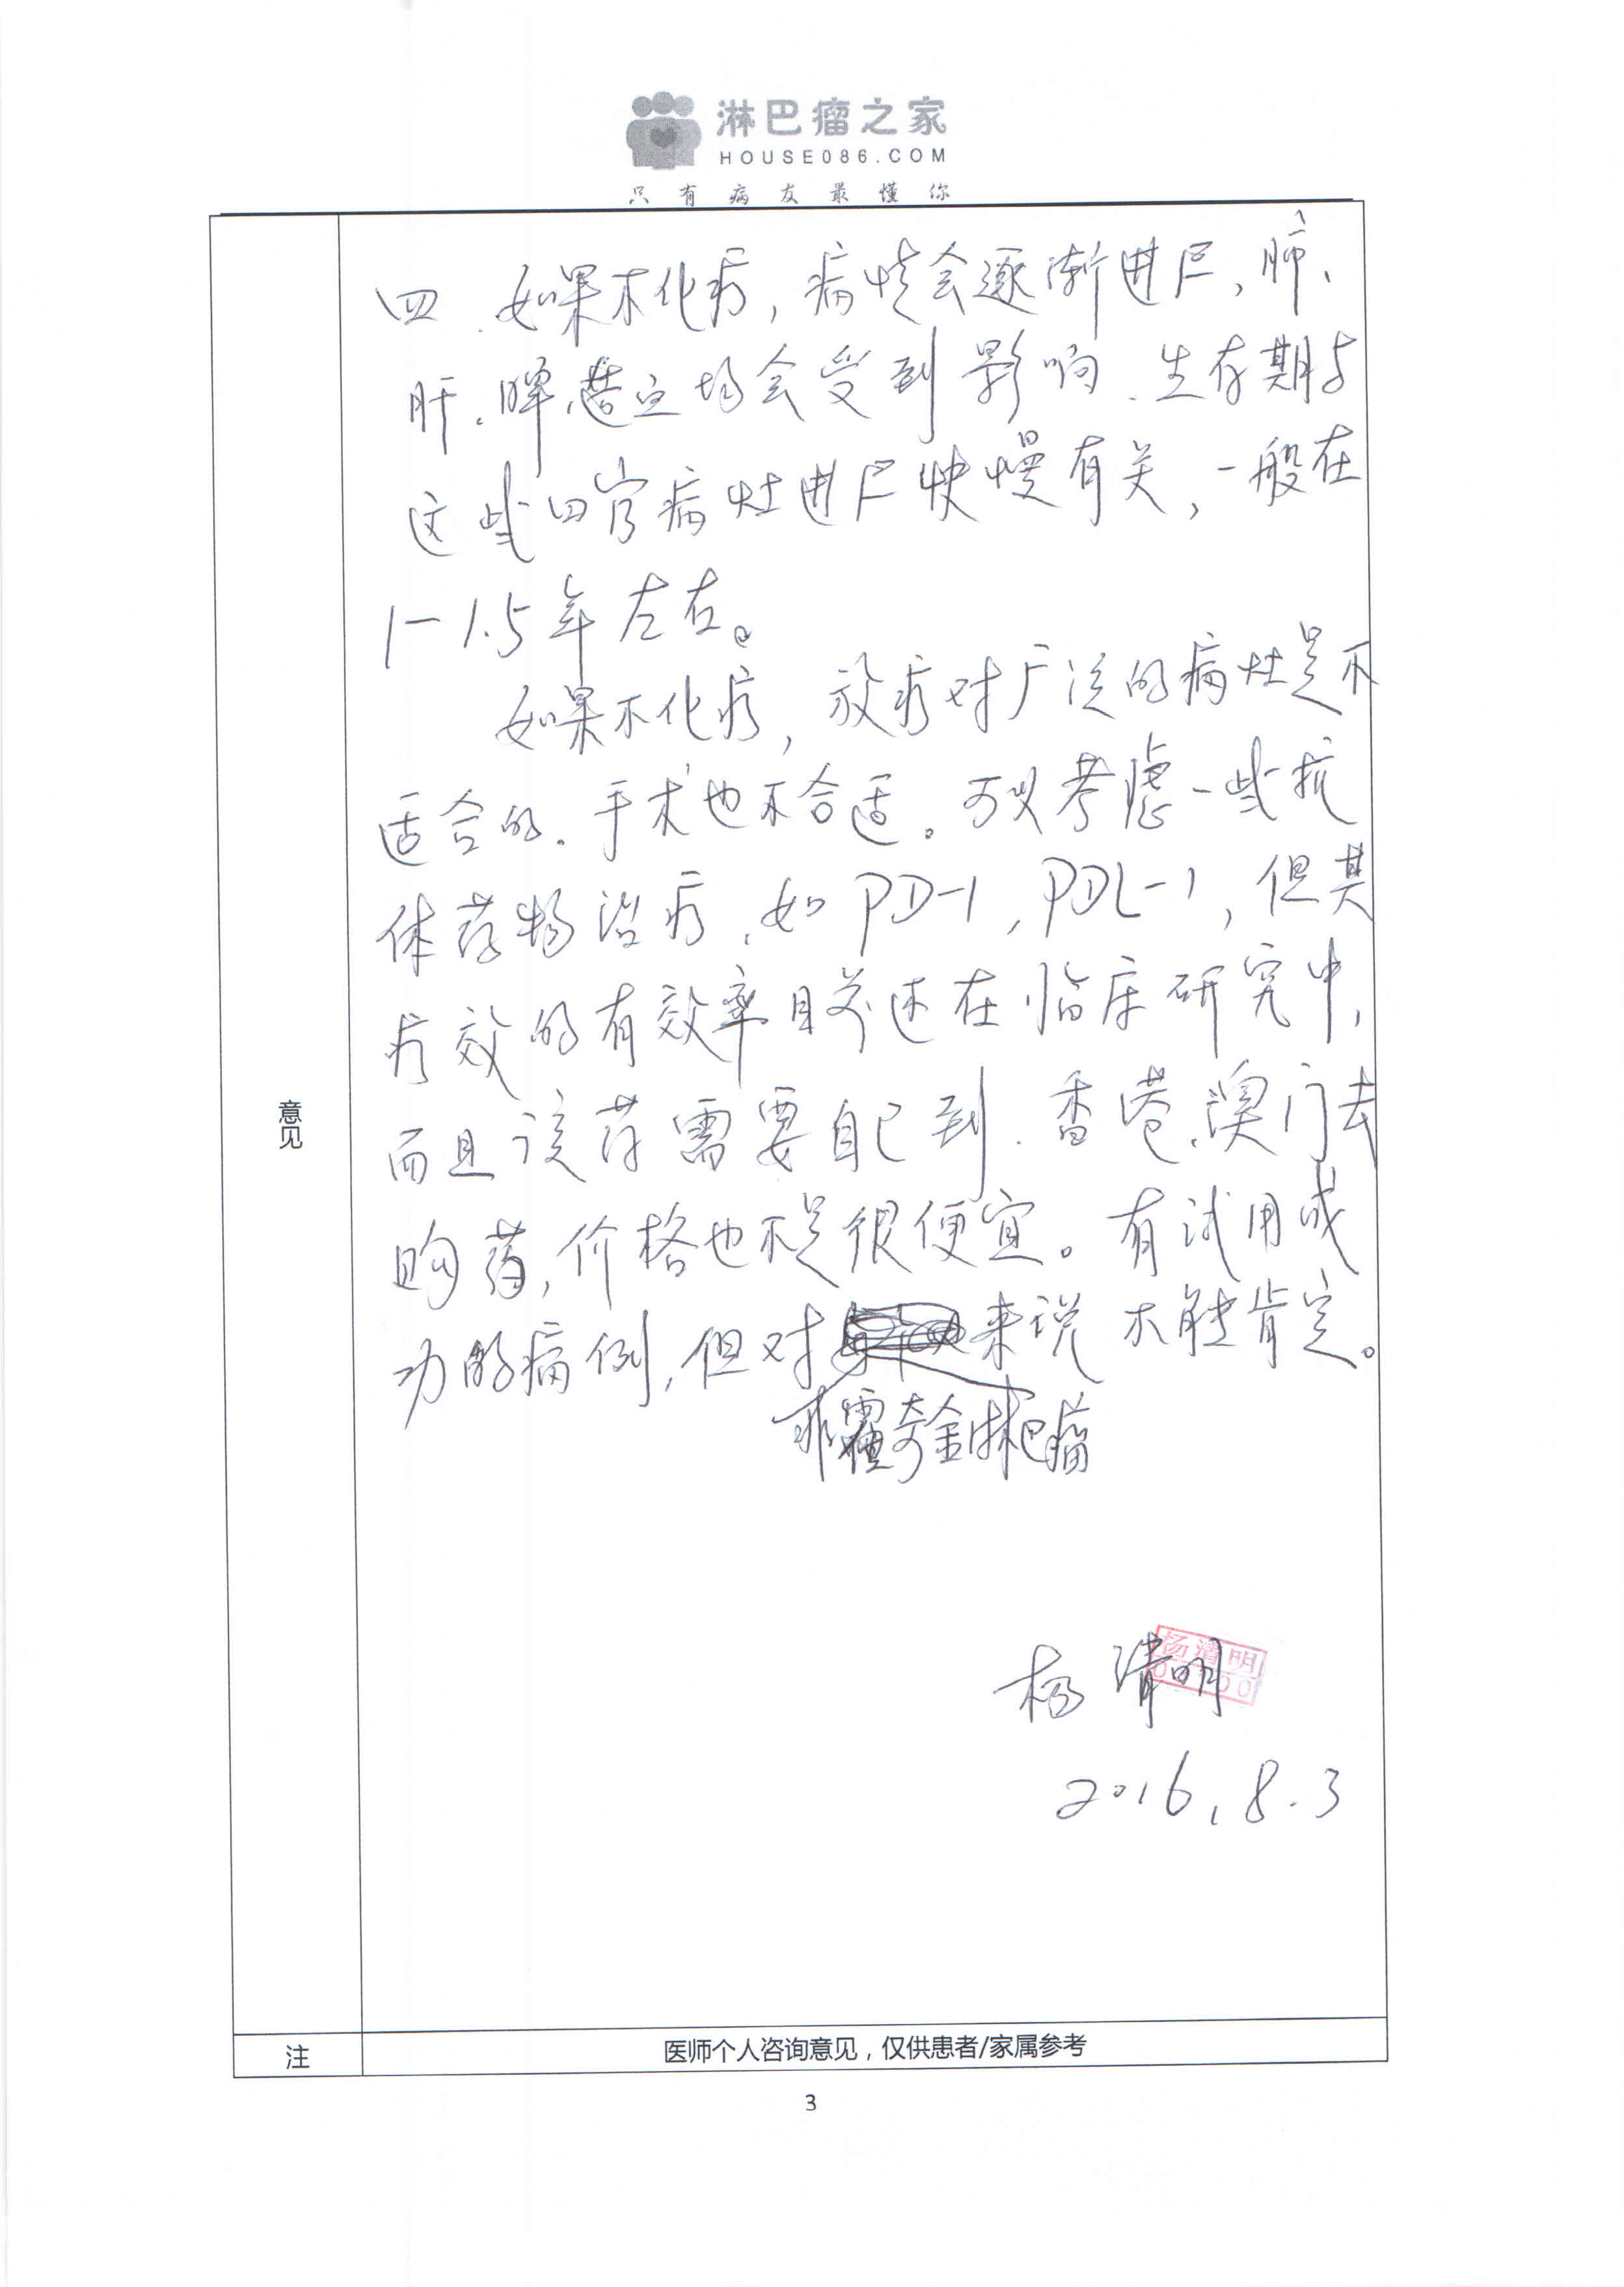 淋巴瘤之家
HOUSE086.COM
只有病友最懂你
四、如果不化疗，病情会逐渐进展，肺、
肝、脾、等均会受到影响、生存期与
这些四官病灶进展快慢有关，一般在
1-1.5年左右。
如果不化疗，放疗对广泛的病灶是不
适合的。手术也不合适。可以考虑一些抗
体药物治疗、如PD-1，PDL-1，但其
疗效的有效率目前还在临床研究中，
而且该药需要自己到香港、澳门去
购药，价格也不是很便宜。有试用成
功的病例，但对来说不能肯定。
非霍奇金淋巴瘤
意见
杨清明
杨清明
2016.8.3
注
医师个人咨询意见，仅供患者/家属参考
3